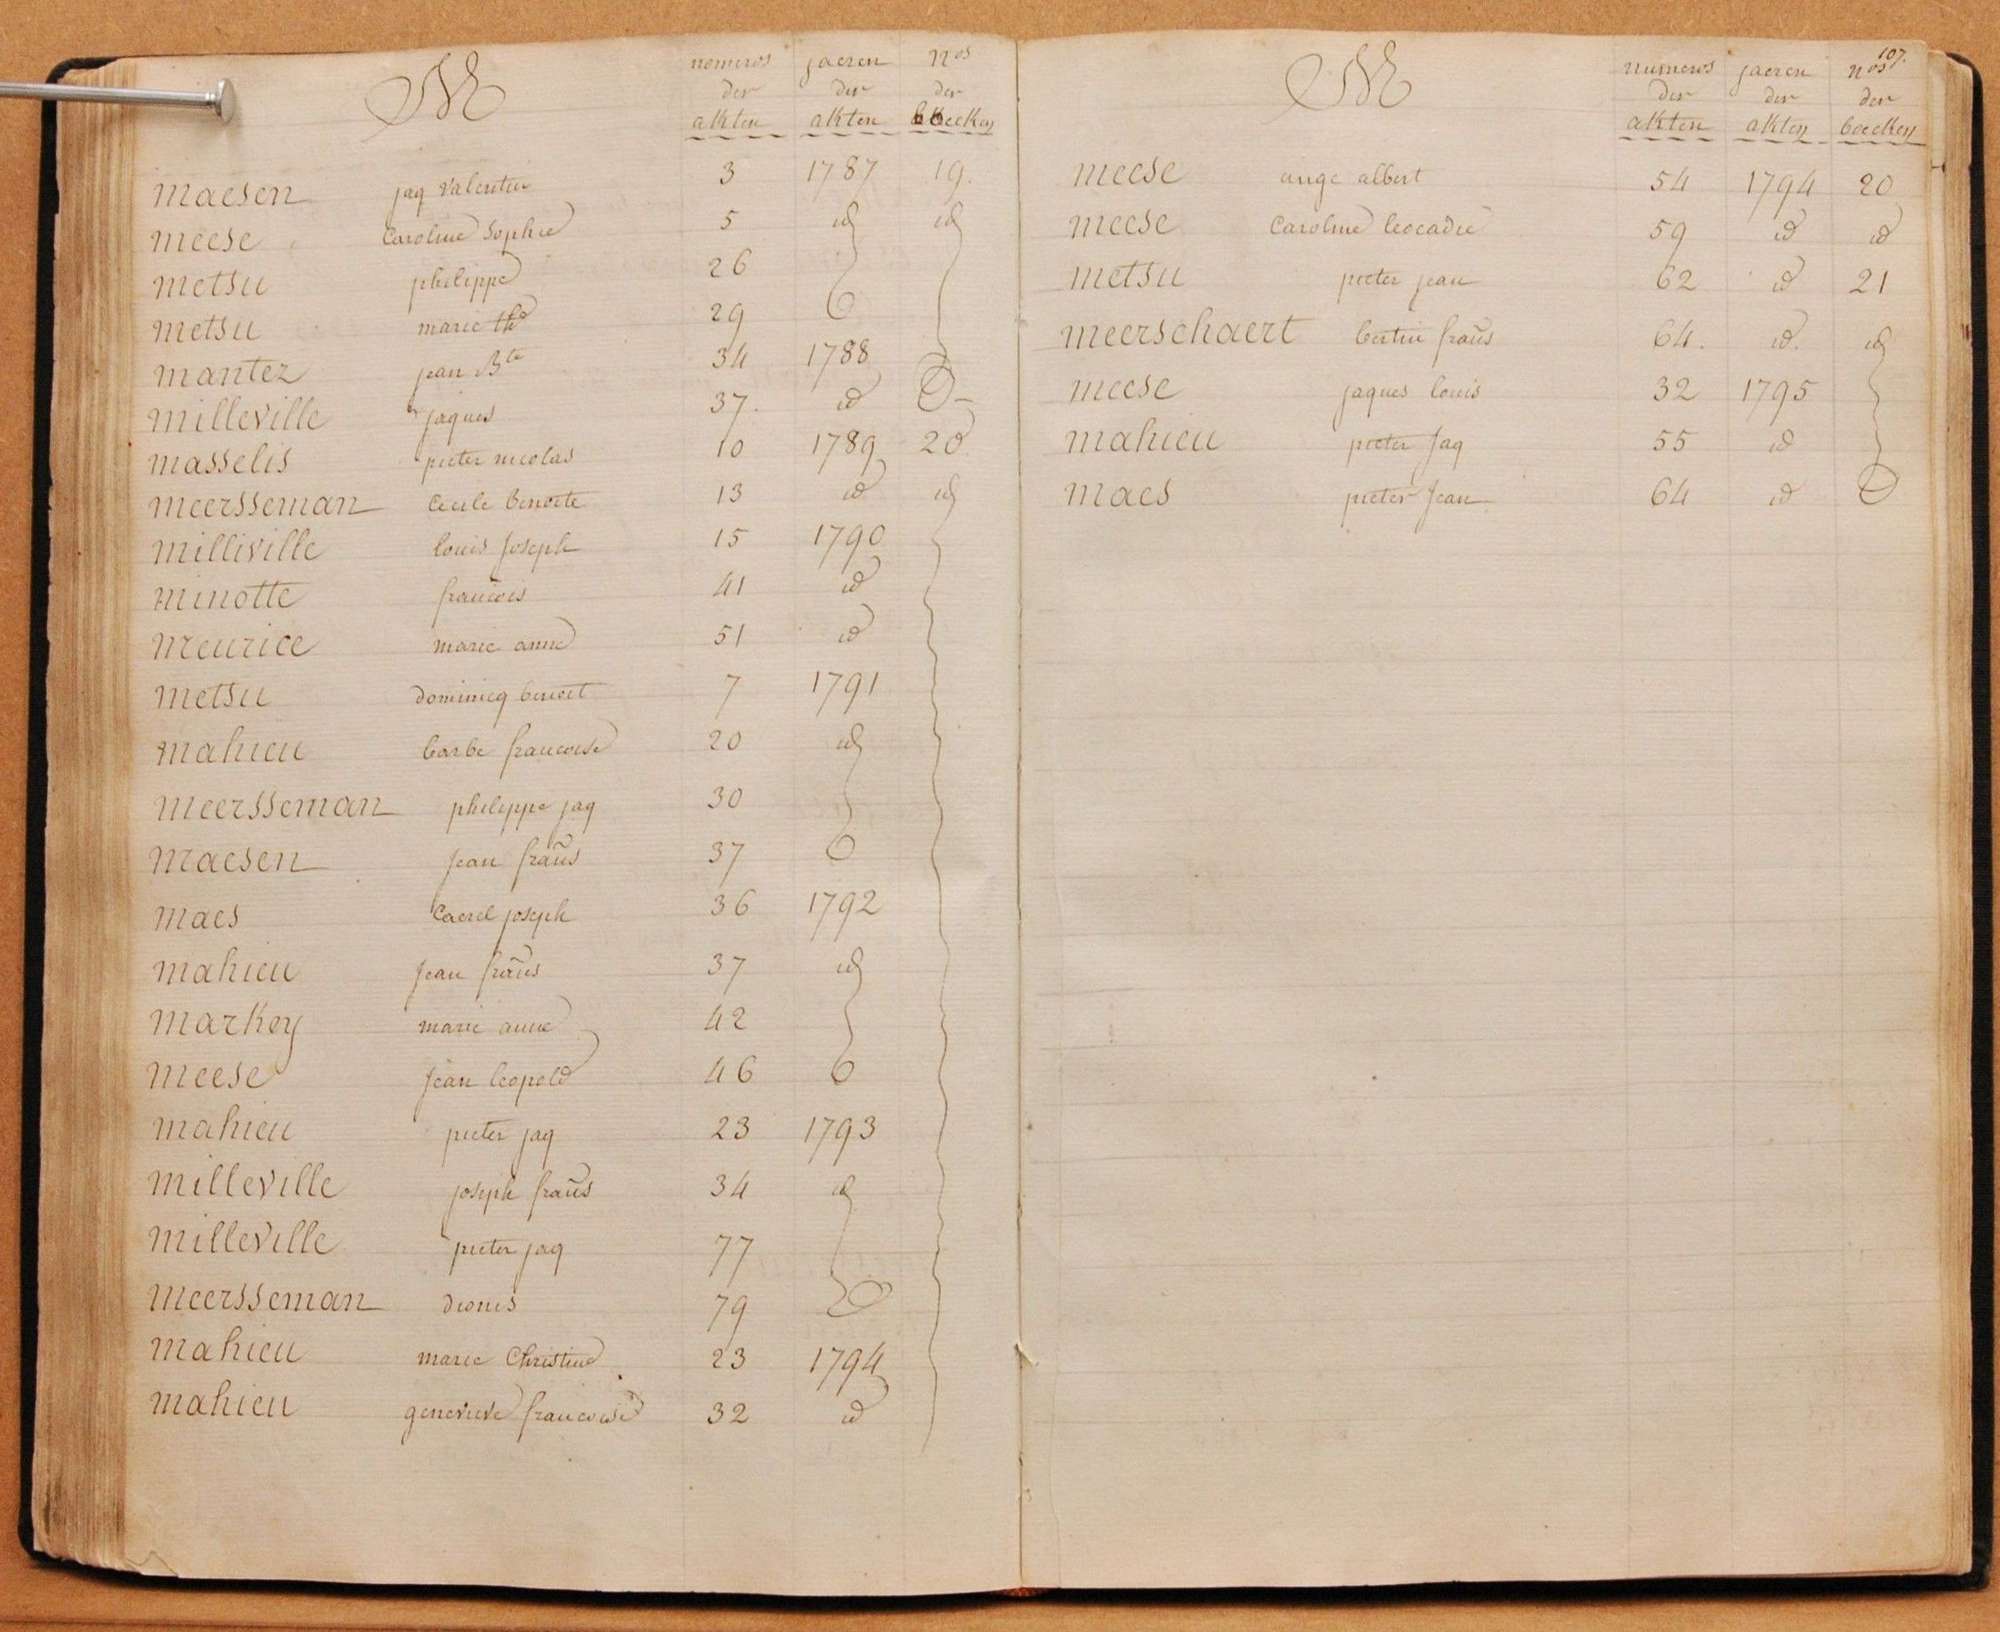 M numeros jaeren nos
der der der
akten akten boecken
maesen jaq valentin 3 1787 19.
meese Caroline Sophie 5 id id
metsu philippe 26
metsu marie th 29
mantez jean Bte 34 1788
milleville jaques 37. id
masselis pieter nicolas 10 1789 20
meersseman Cecile benoite 13 id id
milliville louis joseph 15 1790
minotte francois 41 id
meurice marie anne 51 id
metsu dominicq benoit 7 1791
mahieu barbe francoise 20 id
meersseman philippe jaq 30
maesen jean frans 37
maes Caerel joseph 36 1792
mahieu jean frans 37 id
markey marie anne 42
meese jean leopold 46
mahieu pieter jaq 23 1793
milleville joseph frans 34 id
milleville pieter jaq 77
meersseman dionis 79
mahieu marie Christine 23 1794
mahieu genevieve francoise 32 id
107.
M numeros jaeren nos
der der der
akten akten boecken
meese ange albert 54 1794 20
meese Caroline leocadie 59 id id
metsu pieter jean 62 id 21
meerschaert bertin frans 64. id. id
meese jaques louis 32 1795
mahieu pieter jaq 55 id
maes pieter jean 64 id